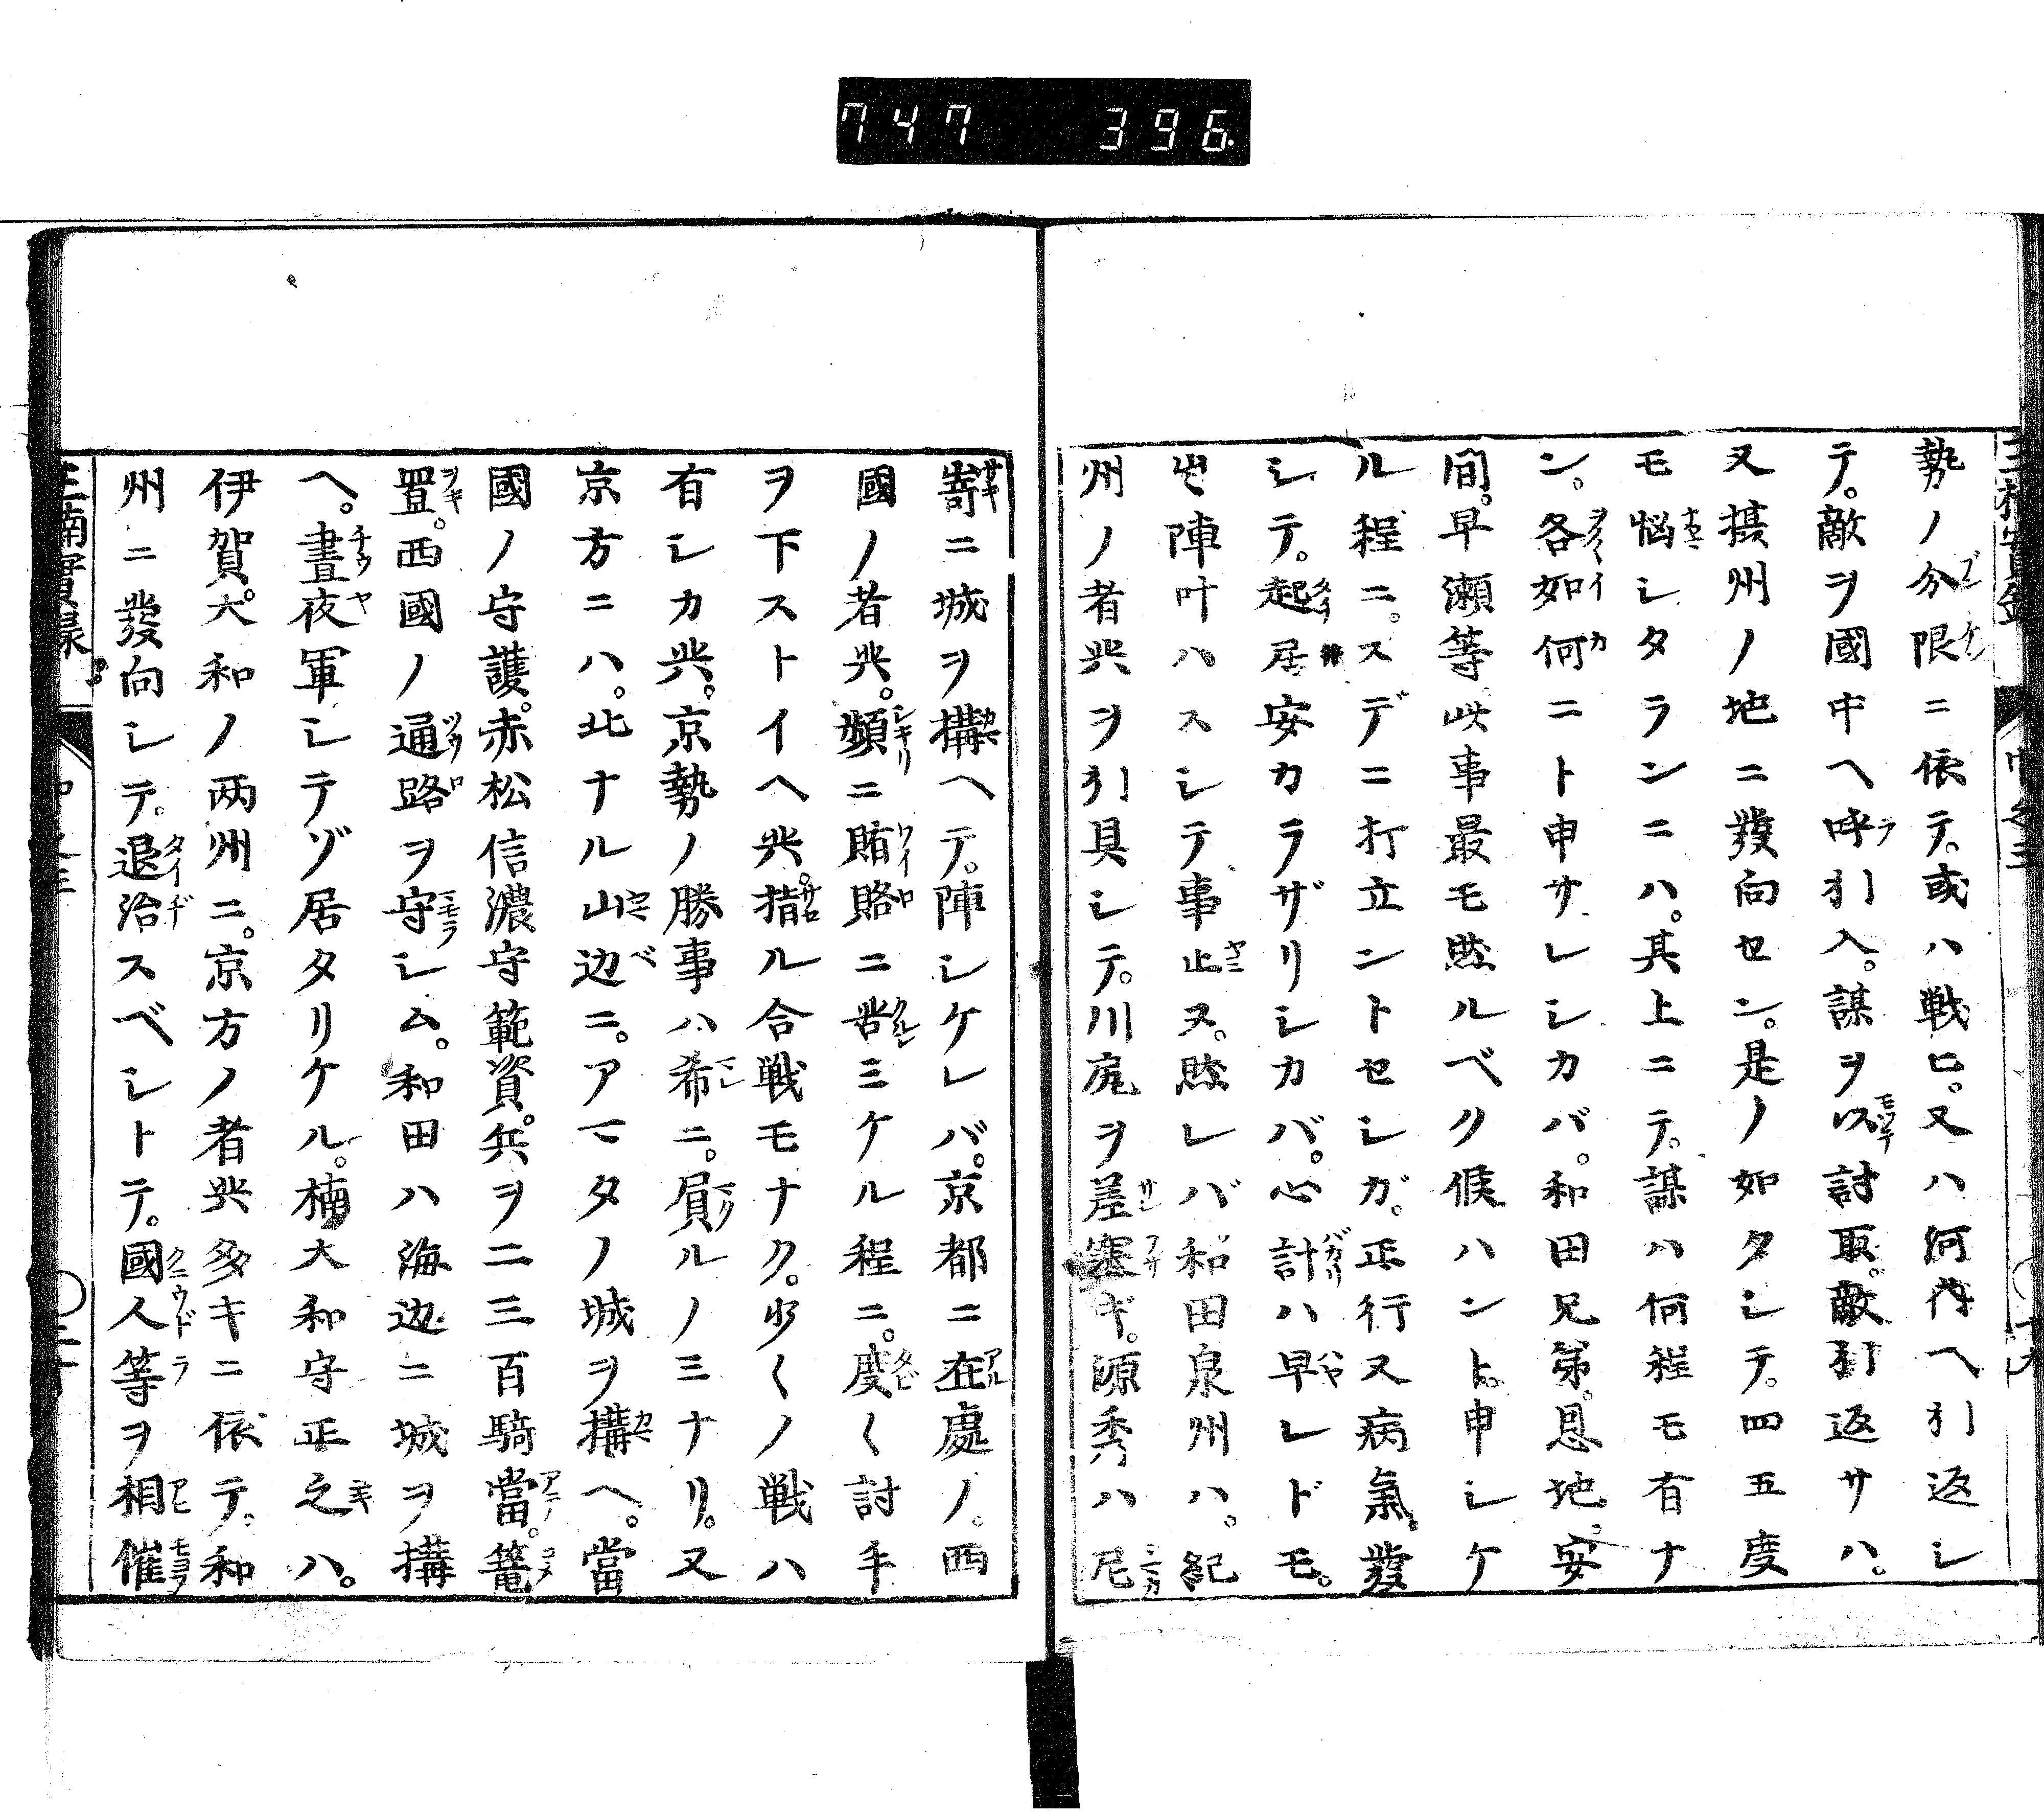 747 396
勢ノ分限ニ依テ。或ハ戦ヒ。又ハ河内ヘ引返シ
テ。敵ヲ國中ヘ呼引入。謀ヲ以討取。敵引返サハ。
又摂州ノ地ニ發向セン。是ノ如クシテ。四五度
モ悩シタランニハ。其上ニテ。謀ハ何程モ有ナ
ン。各如何ニト申サレシカバ。和田兄弟。恩地。安
間。早瀬等此事最モ然ルベク候ハント。申シケ
ル程ニ。スデニ打立ントセシガ。正行又病氣發
シテ。起居安カラザリシカバ。心計ハ早レドモ。
出陣叶ハスシテ事止ヌ。然レバ和田泉州ハ。紀
州ノ者共ヲ引具シテ。川尻ヲ差塞ギ。源秀ハ尼
嵜ニ城ヲ構ヘテ。陣シケレバ。京都ニ在處ノ。西
國ノ者共。頻ニ賄賂ニ苦ミケル程ニ。度〱討手
ヲ下ストイヘ共。指ル合戦モナク。少〱ノ戦ハ
有シカ共。京勢ノ勝事ハ希ニ。屓ルノミナリ。又
京方ニハ。北ナル山辺ニ。アマタノ城ヲ構ヘ。當
國ノ守護。赤松信濃守範資。兵ヲ二三百騎當。篭
置。西國ノ通路ヲ守シム。和田ハ海辺ニ城ヲ構
ヘ。晝夜軍シテゾ居タリケル。楠大和守正之ハ。
伊賀。大和ノ両州ニ。京方ノ者共多キニ依テ。和
州ニ發向シテ。退治スベシトテ。國人等ヲ相催
三楠實録